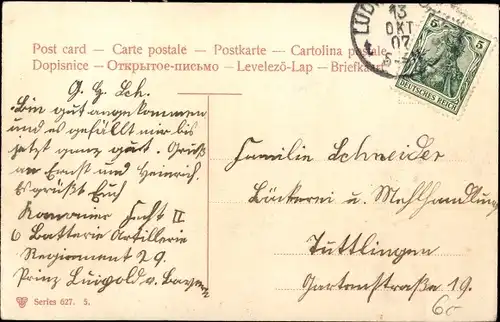 Post card – Carte postale – Postkarte – Cartolina postale
Dopisnice – Открытое-письмо – Levelezö-Lap – Briefkaart
LUD
13
OKT
07
5 5
DEUTSCHES REICH
G. G. Sch.
Bin gut angekommen
und es gefällt mir bis
jetzt ganz gut. Gruß
an Ernst und Heinrich.
Es grüßt Euch
Kanonier Fecht II
6 Batterie Artillerie
Regiement 29
Prinz Luipold v. Bayern
Familie Schneider
Bäckerei u. Mehlhandlung
Tuttlingen
Gartenstraße 19.
60
Series 627. 5.